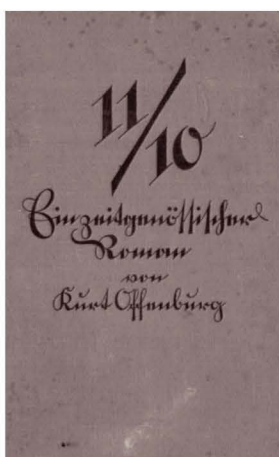 11/10
Ein zeitgenössischer
Roman
von
Kurt Offenburg